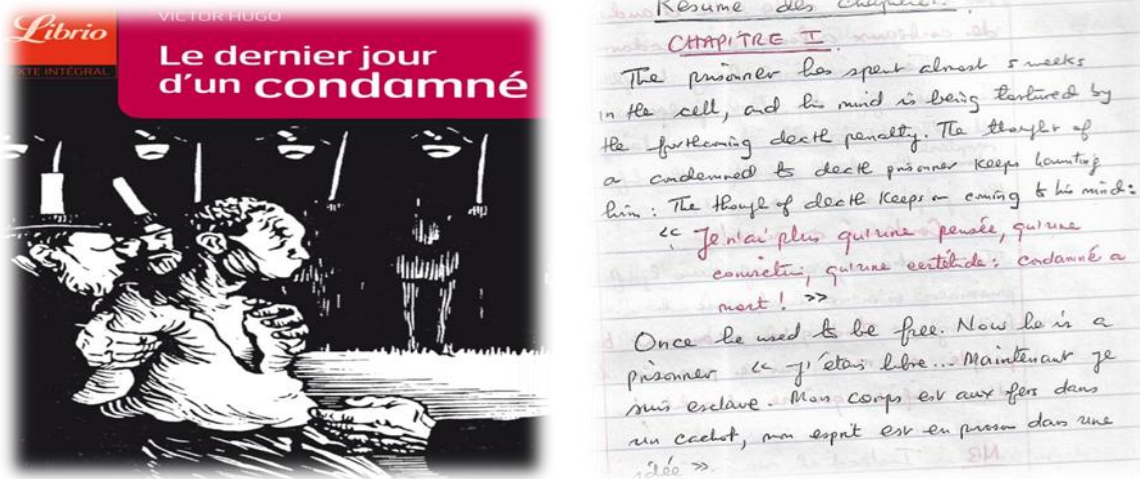 VICTOR HUGO
Librio
TEXTE INTÉGRAL
Le dernier jour
d'un condamné
Résumé des chapitres.
CHAPITRE I.
The prisonner has spent almost 5 weeks
in the cell, and his mind is being tortured by
the forthcoming death penalty. The thought of
a condemned to death prisonner keeps haunting
him : The though of death keeps on coming to his mind :
« Je n'ai plus qu'une pensée, qu'une
conviction, qu'une certitude : condamné a
mort ! »
Once he used to be free. Now he is a
prisonner « J'étais libre... Maintenant je
suis esclave. Mon corps est aux fers dans
un cachot, mon esprit est en prison dans une
idée ».